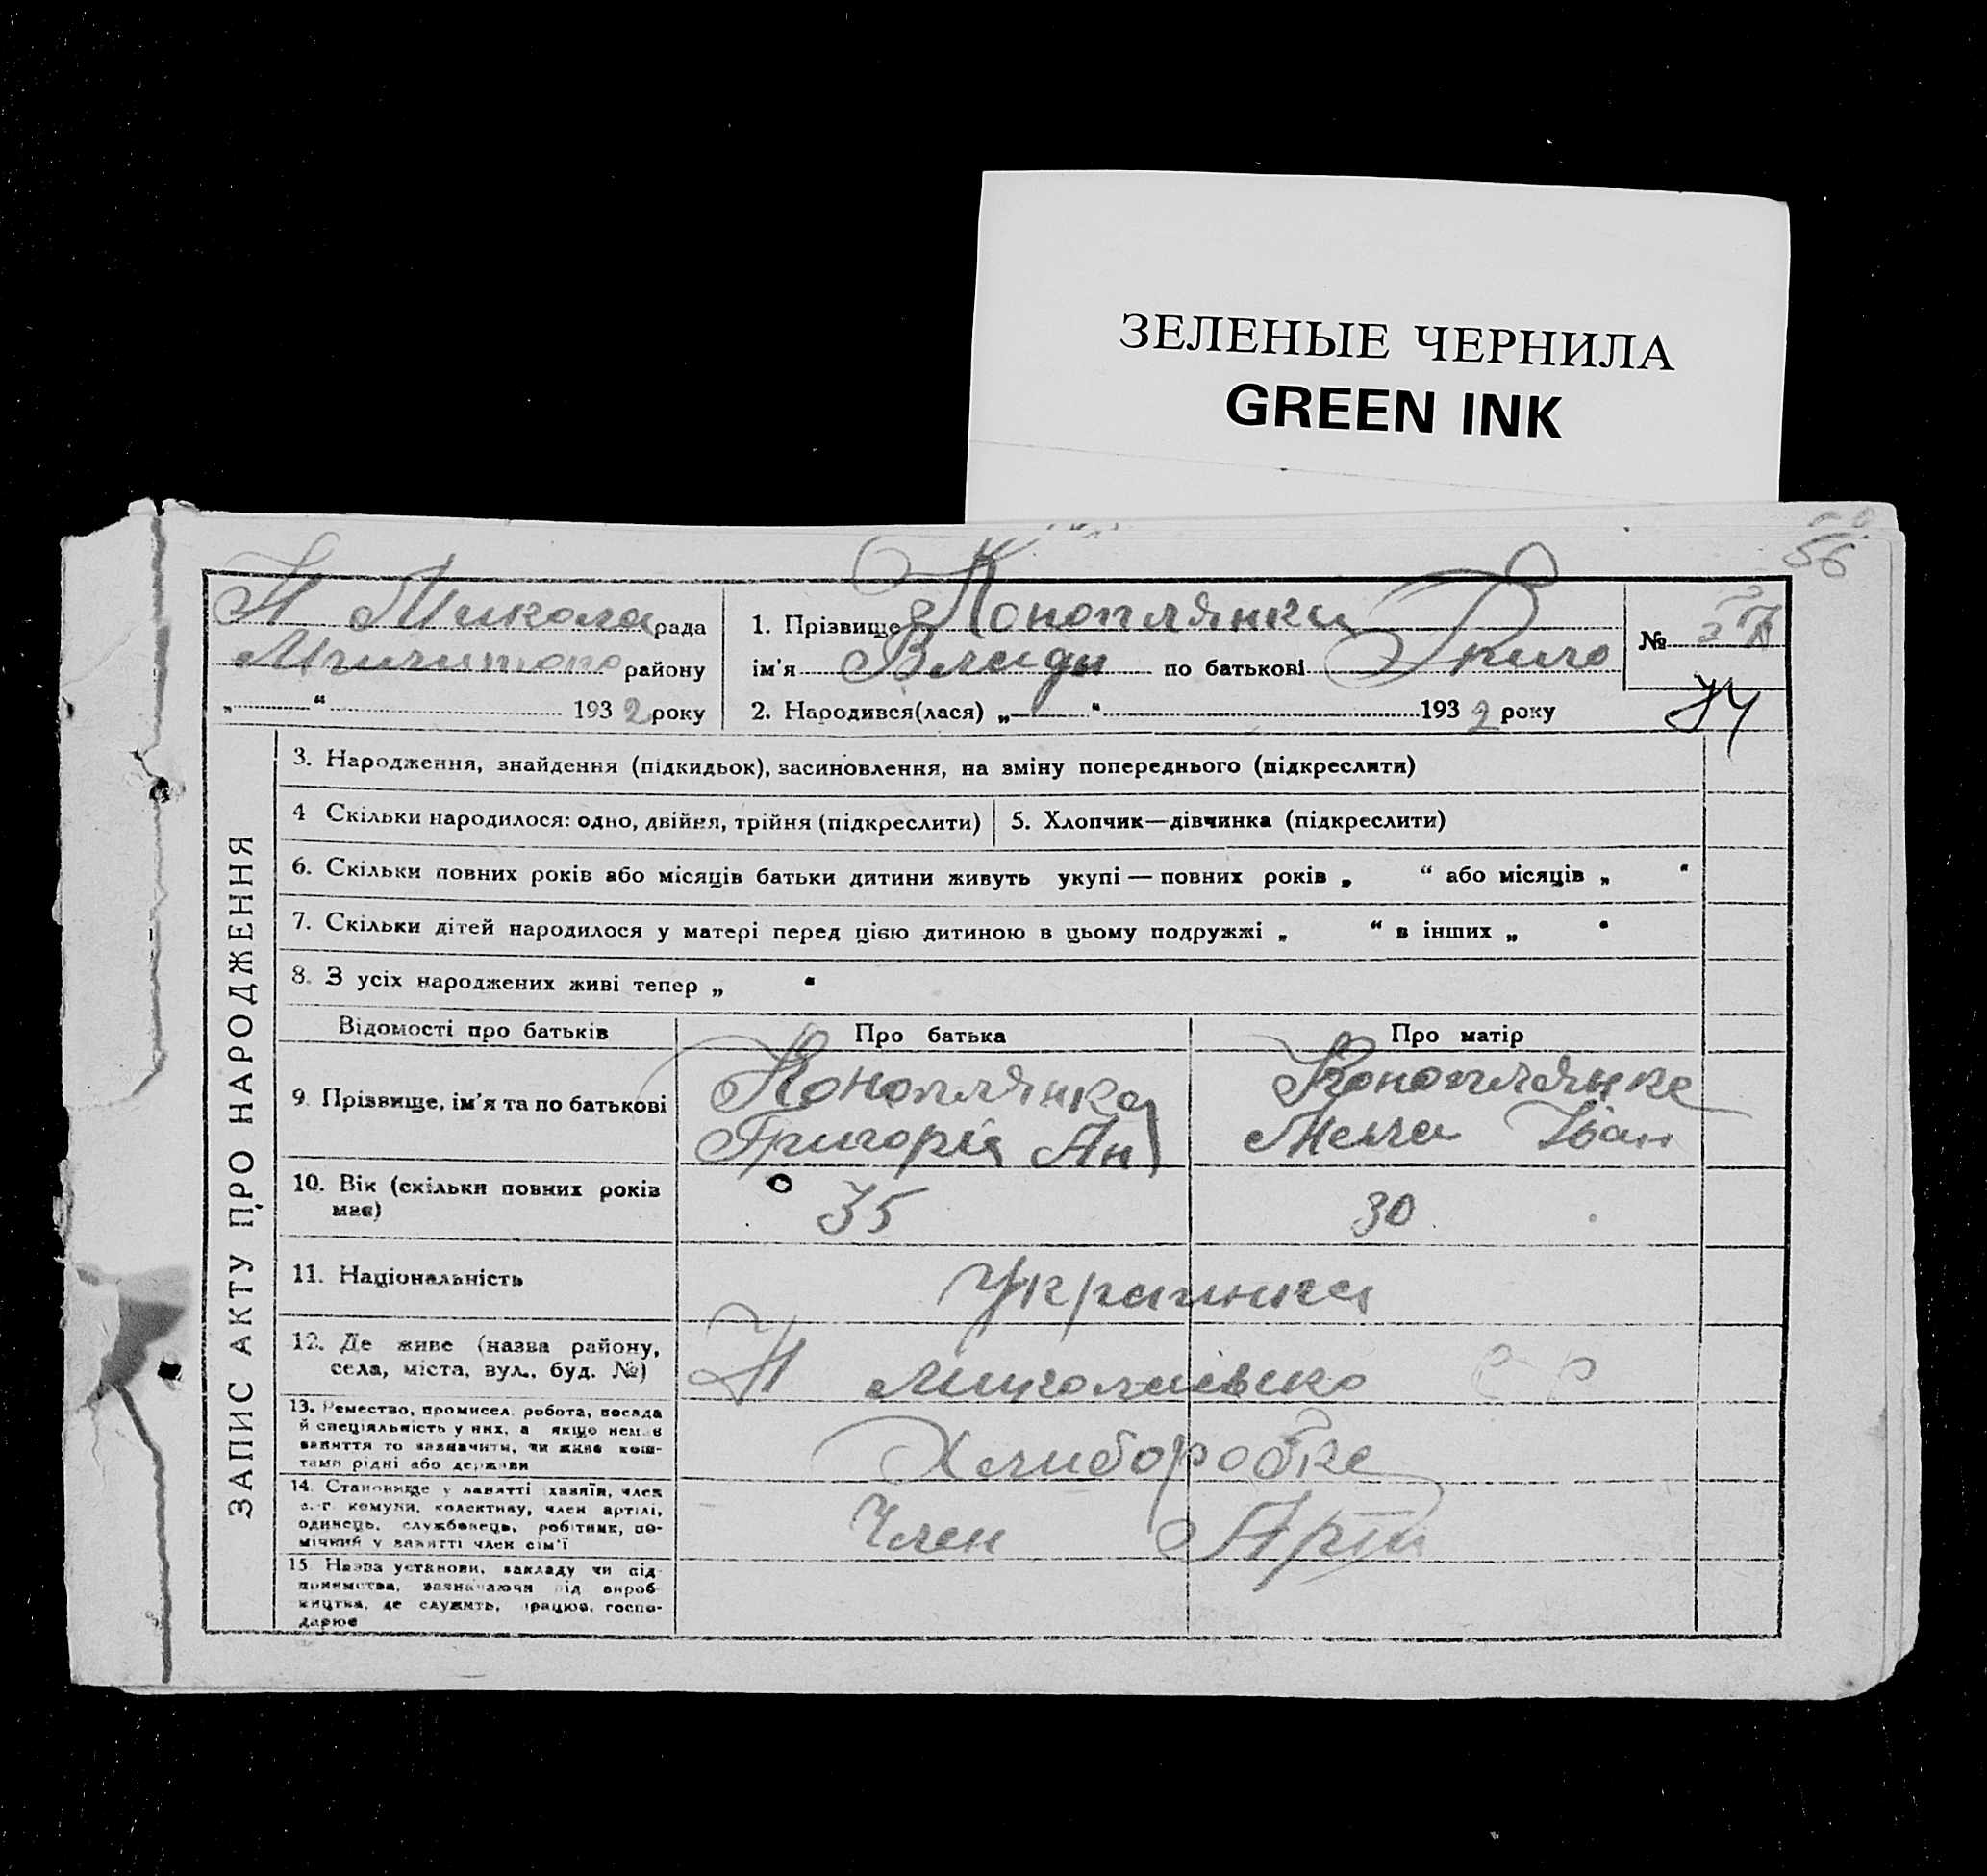 ЗЕЛЕНЫЕ ЧЕРНИЛА
GREEN INK
56
Н Микола рада
району
„ “ 193 2 року
1. Прізвище Коноплянка
ім'я Влади по батькові Григо
2. Народився(лася) „ “ 193 2 року
№
ЗАПИС АКТУ ПРО НАРОДЖЕННЯ
3. Народження, знайдення (підкидьок), засиновлення, на зміну попереднього (підкреслити)
4 Скільки народилося: одно, двійня, трійня (підкреслити)
5. Хлопчик—дівчинка (підкреслити)
6. Скільки повних років або місяців батьки дитини живуть укупі — повних років „ “ або місяців „ “
7. Скільки дітей народилося у матері перед цією дитиною в цьому подружжі „ “ в інших „ “
8. З усіх народжених живі тепер „ “
Відомості про батьків Про батька Про матір
9. Прізвище, ім'я та по батькові
Коноплянка
Григорій Ан
Коноплянка
Іван
10. Вік (скільки повних років
має)
35 30
11. Національність
Украинка
12. Де живе (назва району,
села, міста, вул., буд. №)
Н
13. Ремество, промисел, робота, посада
й спеціяльність у них, а якщо немає
заняття то зазначити, чи живе кош-
тами рідні або держави
Хлиборобка
14. Становище у занятті хазяїн, член
с.-г. комуни, колективу, член артілі,
одинець, службовець, робітник, по-
мічний у занятті член сім'ї
Член Арті
15. Назва установи, закладу чи під-
приємства, зазначаючи від вироб-
ництва, де служить, працює, госпо-
дарює